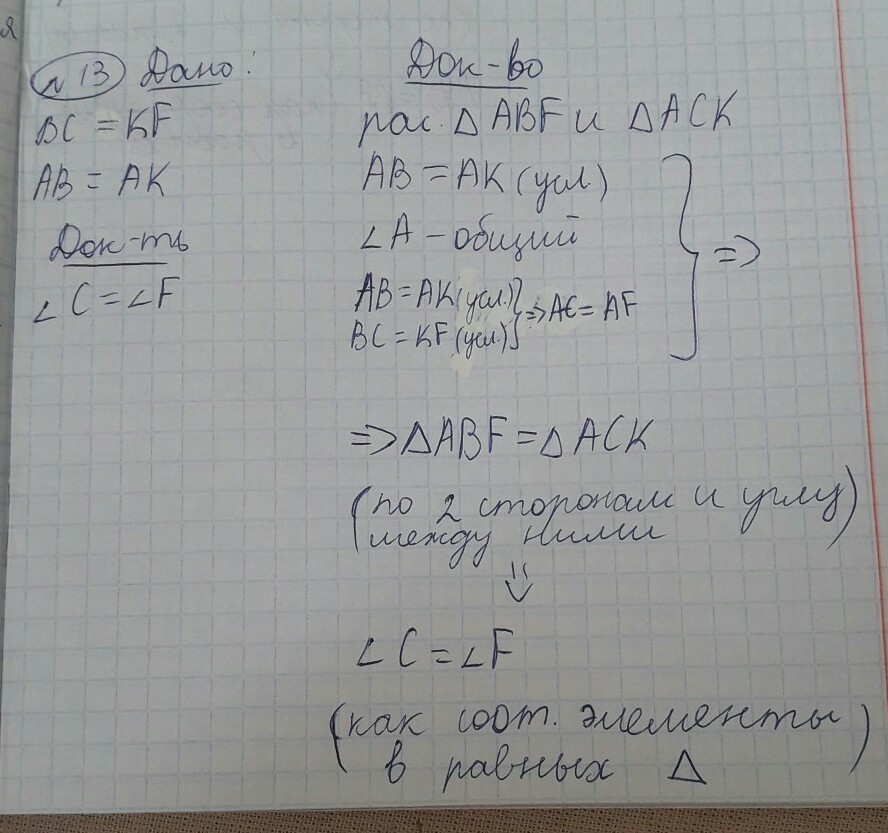 я
№ 13 Дано:
BC = KF
AB = AK
Док-ть
∠C = ∠F
Док-во
рас. △ ABF и △ACK
AB = AK (усл)
∠A - общий
AB = AK (усл.)
BC = KF (усл.) } => AC = AF
} =>
=> △ABF = △ACK
(по 2 сторонам и углу
между ними)
⇓
∠C = ∠F
(как соот. элементы
в равных △)